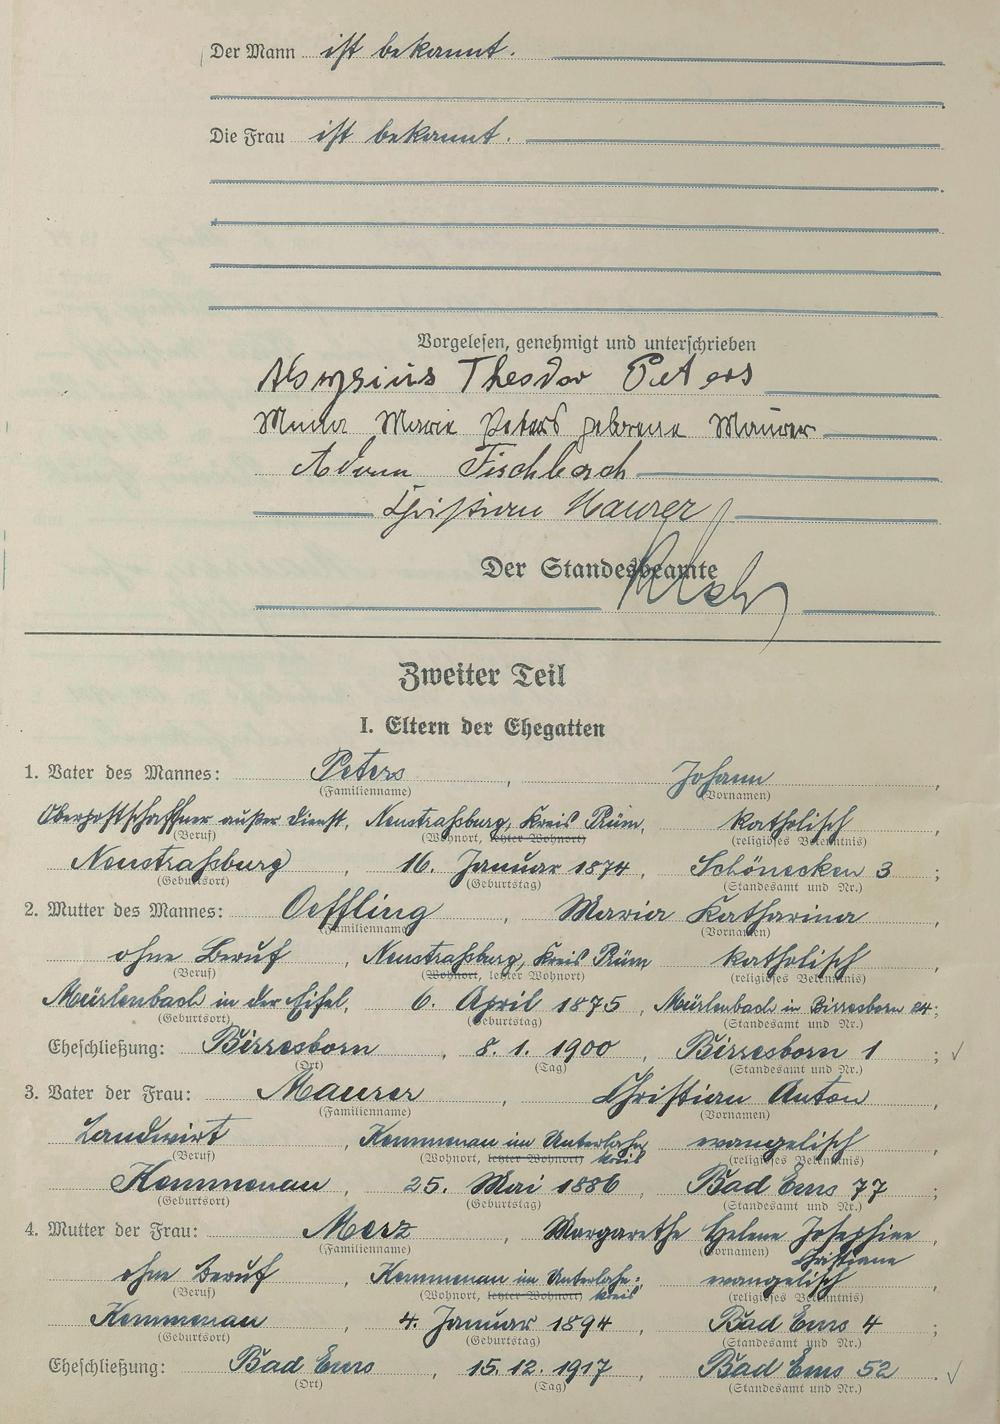 Der Mann ist bekannt.
Die Frau ist bekannt.
Vorgelesen, genehmigt und unterschrieben
Aloysius Theodor Peters
Minna Marie Peters geborene Maurer
Adam Fischbach
Christian Maurer
Der Standesbeamte
Zweiter Teil
I. Eltern der Ehegatten
1. Vater des Mannes: Peters, Johann
(Familienname) (Vornamen)
Oberpostschaffner außer Dienst, Neustraßburg, Kreis Prüm, katholisch,
(Beruf) (Wohnort, letzter Wohnort) (religiöses Bekenntnis)
Neustraßburg, 16. Januar 1874, Schönecken 3;
(Geburtsort) (Geburtstag) (Standesamt und Nr.)
2. Mutter des Mannes: Oeffling, Maria Katharina,
(Familienname) (Vornamen)
ohne Beruf, Neustraßburg, Kreis Prüm katholisch,
(Beruf) (Wohnort, letzter Wohnort) (religiöses Bekenntnis)
Mürlenbach in der Eifel, 6. April 1875, Mürlenbach in Birresborn 24;
(Geburtsort) (Geburtstag) (Standesamt und Nr.)
Eheschließung: Birresborn, 8. 1. 1900, Birresborn 1;
(Ort) (Tag) (Standesamt und Nr.)
3. Vater der Frau: Maurer, Christian Anton,
(Familienname) (Vornamen)
Landwirt, Kemmenau im Unterlahnkreis evangelisch,
(Beruf) (Wohnort, letzter Wohnort) (religiöses Bekenntnis)
Kemmenau, 25. Mai 1886, Bad Ems 77;
(Geburtsort) (Geburtstag) (Standesamt und Nr.)
4. Mutter der Frau: Merz, Margarethe Helene Josephine,
(Familienname) (Vornamen) Christiane
ohne Beruf, Kemmenau im Unterlahn: kreis evangelisch,
(Beruf) (Wohnort, letzter Wohnort) (religiöses Bekenntnis)
Kemmenau, 4. Januar 1894, Bad Ems 4;
(Geburtsort) (Geburtstag) (Standesamt und Nr.)
Eheschließung: Bad Ems, 15. 12. 1917, Bad Ems 52.
(Ort) (Tag) (Standesamt und Nr.)